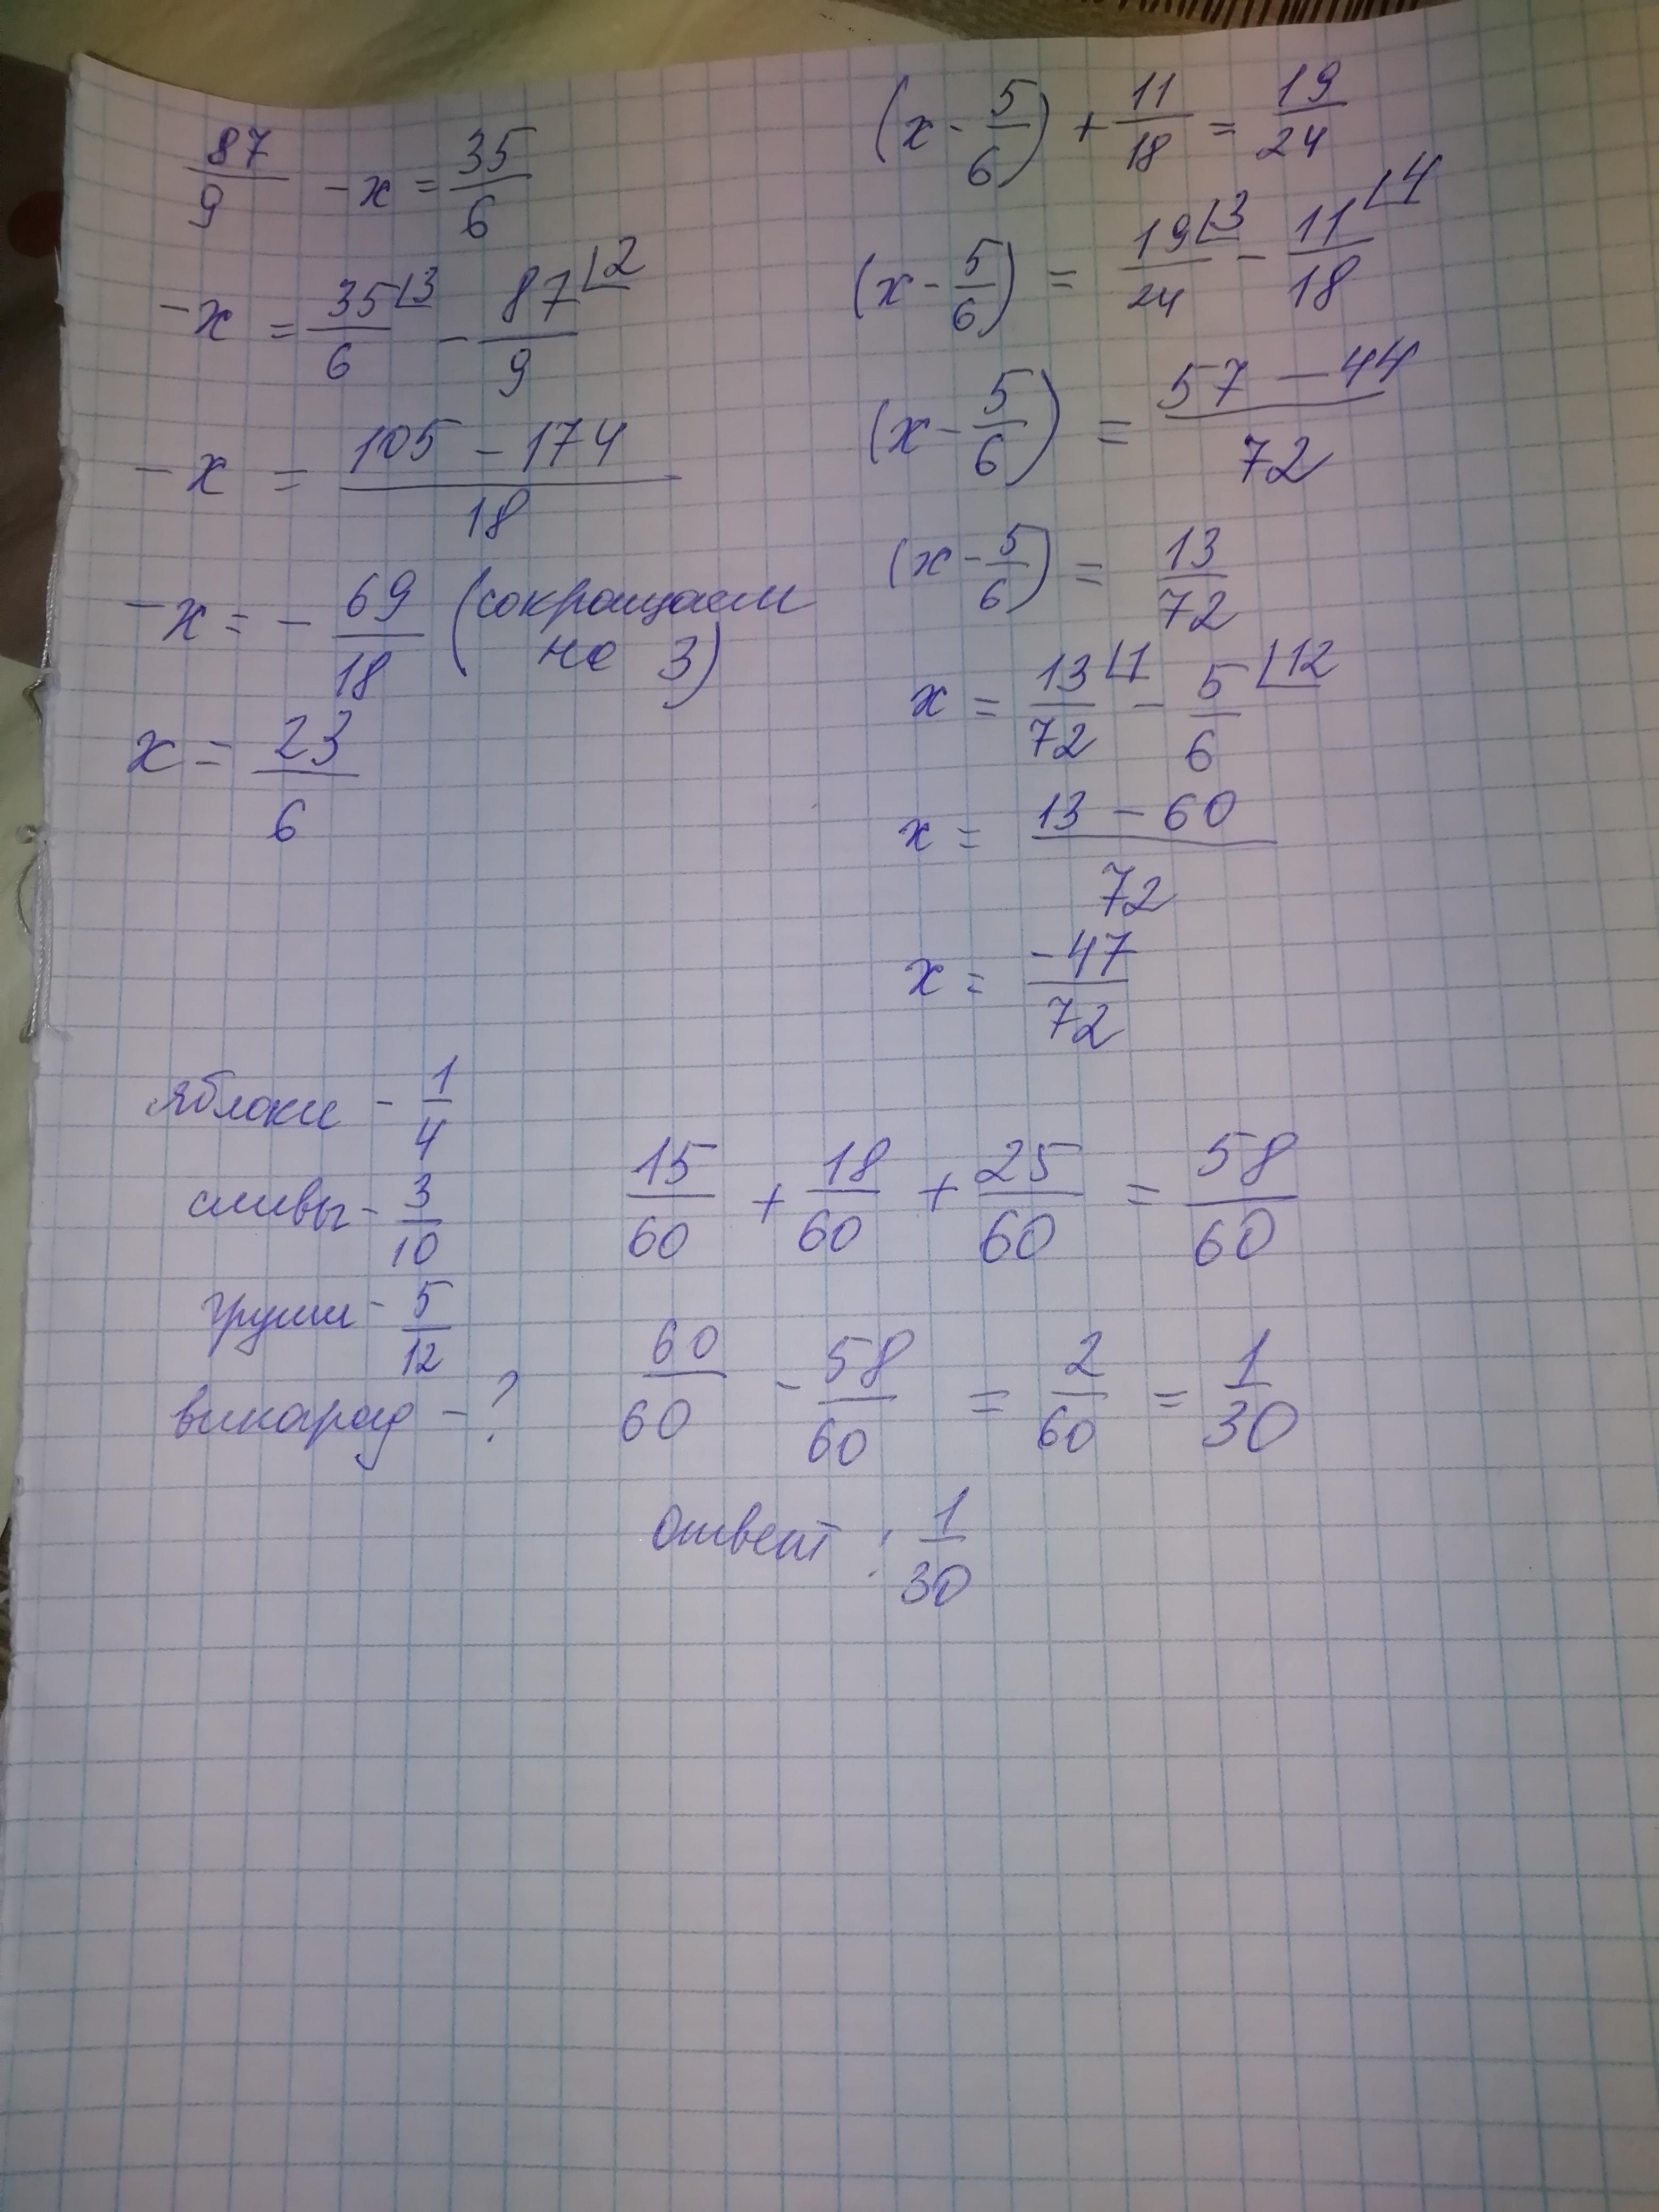 87/9 - x = 35/6
-x = 35⌊3/6 - 87⌊2/9
-x = 105 - 174/18
-x = - 69/18 (сокращаем
на 3)
x = 23/6
(x - 5/6) + 11/18 = 19/24
(x - 5/6) = 19⌊3/24 - 11⌊4/18
(x - 5/6) = 57 - 44/72
(x - 5/6) = 13/72
x = 13⌊1/72 - 5⌊12/6
x = 13 - 60/72
x = -47/72
яблоки - 1/4
сливы - 3/10
груши - 5/12
винарад - ?
15/60 + 18/60 + 25/60 = 58/60
60/60 - 58/60 = 2/60 = 1/30
ответ : 1/30